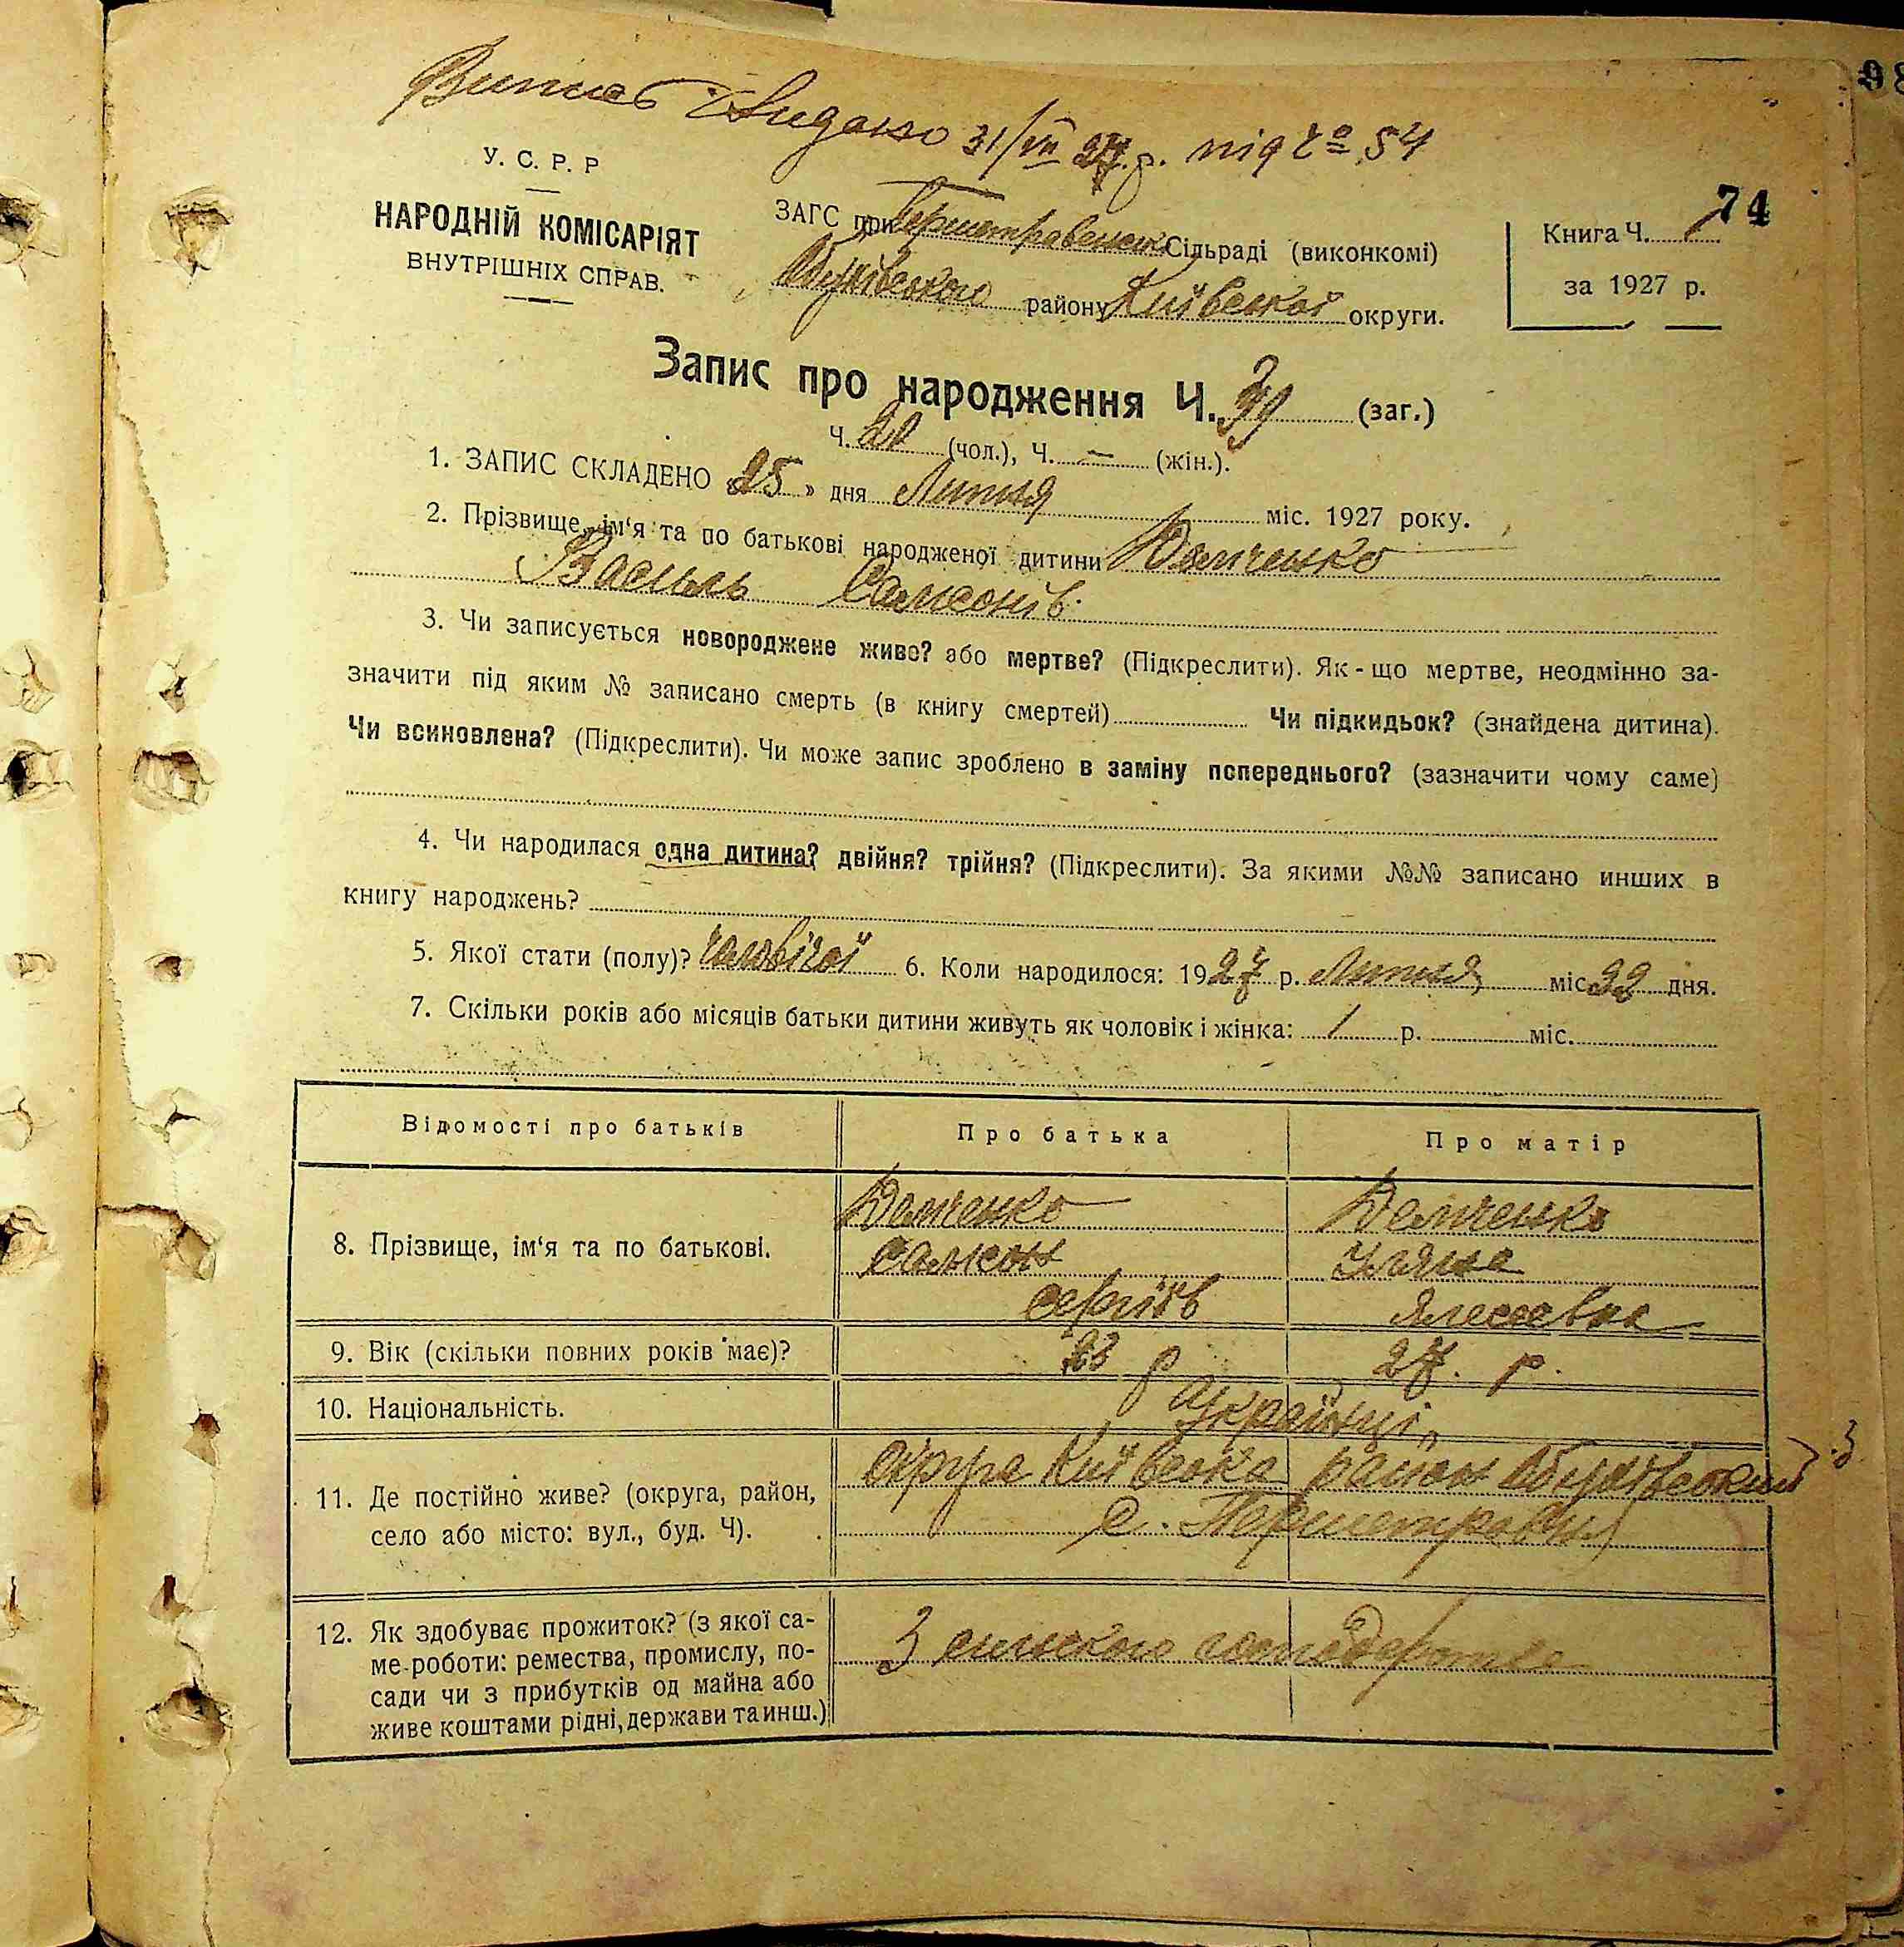 Випис видано 31/VII 27 р. під Ч° 54
98
У. С. Р. Р
74
НАРОДНІЙ КОМІСАРІЯТ
ВНУТРІШНІХ СПРАВ.
ЗАГС при Германівській Сільраді (виконкомі)
Обухівського району Київської округи.
Книга Ч. 1
за 1927 р.
Запис про народження Ч. 39 (заг.)
Ч. 20 (чол.), Ч. — (жін.).
1. ЗАПИС СКЛАДЕНО «25» дня Липня міс. 1927 року.
2. Прізвище, ім‘я та по батькові народженої дитини Демченко
Василь Самсонів.
3. Чи записується новороджене живе? або мертве? (Підкреслити). Як-що мертве, неодмінно за-
значити під яким № записано смерть (в книгу смертей) Чи підкидьок? (знайдена дитина).
Чи всиновлена? (Підкреслити). Чи може запис зроблено в заміну попереднього? (зазначити чому саме)
4. Чи народилася одна дитина? двійня? трійня? (Підкреслити). За якими №№ записано инших в
книгу народжень?
5. Якої стати (полу)? чоловічої 6. Коли народилося: 1927 р. Липня міс. 22 дня.
7. Скільки років або місяців батьки дитини живуть як чоловік і жінка: 1 р. міс.
Відомості про батьків Про батька Про матір
8. Прізвище, ім‘я та по батькові.
Демченко Демченко
Самсон Уляна
Сергіїв
9. Вік (скільки повних років має)? 23 р 27. р.
10. Національність. Українці
11. Де постійно живе? (округа, район,
село або місто: вул., буд. Ч).
округа Київська район Обухівський
с.
12. Як здобуває прожиток? (з якої са-
ме роботи: ремества, промислу, по-
сади чи з прибутків од майна або
живе коштами рідні, держави та инш.)
З сільського господарства